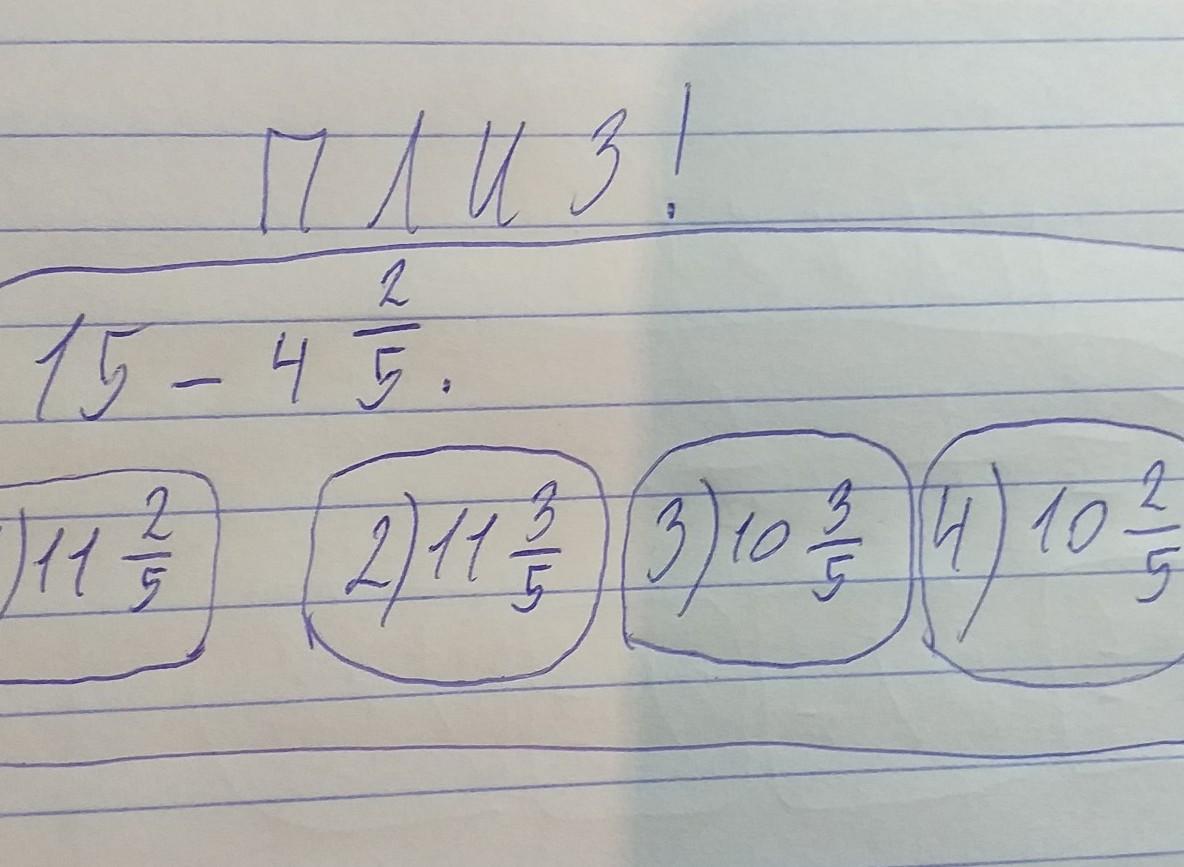 ПЛИЗ!
15 - 4 2/5.
) 11 2/5 2) 11 3/5 3) 10 3/5 4) 10 2/5